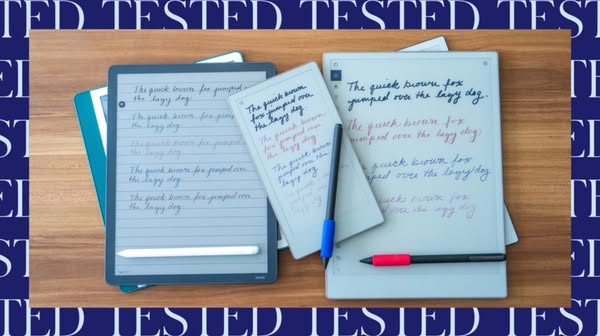 TESTED TESTED TESTED TESTED
The quick brown fox jumped over
the lazy dog.
The quick brown fox jumped over
the lazy dog.
The quick brown fox jumped over
the lazy dog.
The quick brown fox jumped over
the lazy dog.
The quick brown fox jumped over
the lazy dog.
The quick brown
fox jumped over
the lazy dog.
The quick brown
fox jumped over
the lazy dog.
The quick brown
fox jumped over
the lazy dog.
The quick brown fox
jumped over the lazy dog.
The quick brown fox
jumped over the lazy dog
The quick brown fox
jumped over the lazy dog
The quick brown fox
jumped over the lazy dog.
TESTED TESTED TESTED TESTED